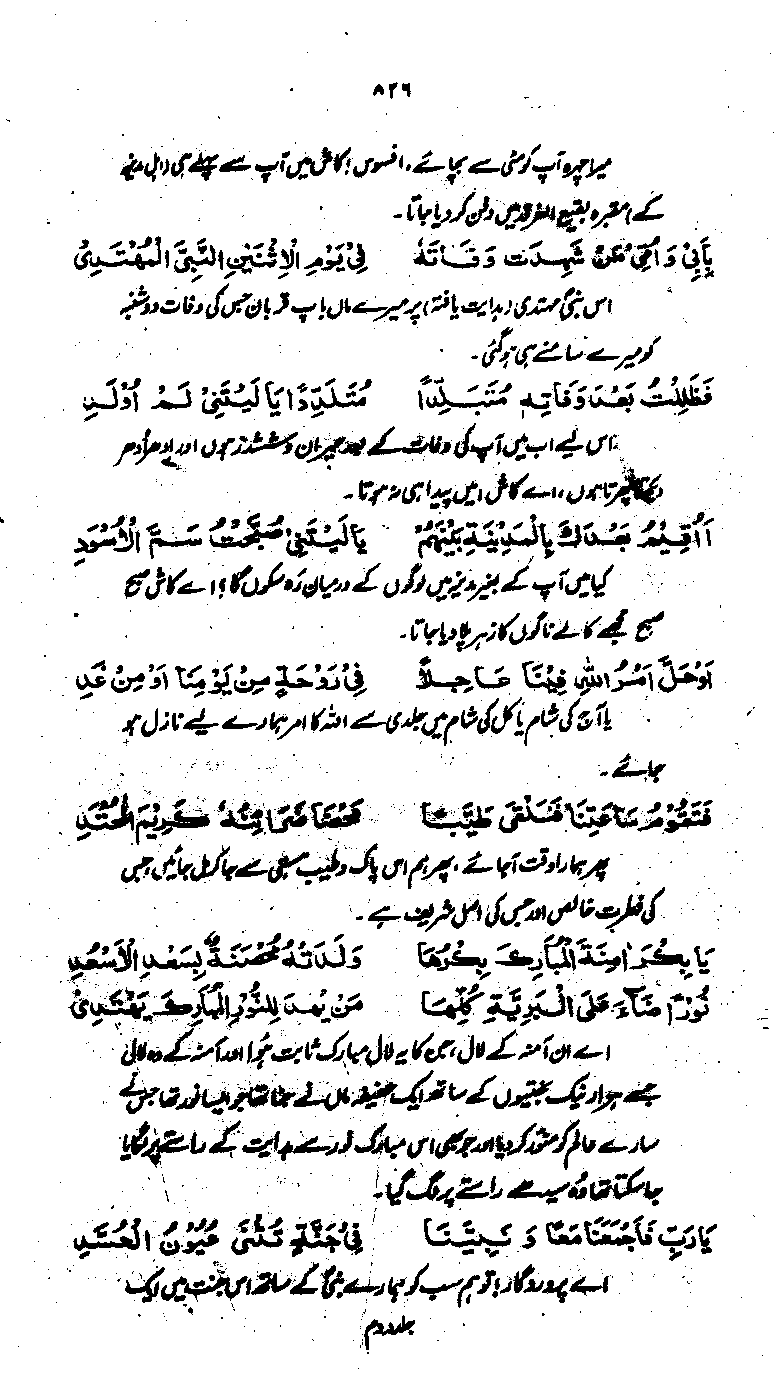 ۸۲۶
میرا چہرہ آپ کو مٹی سے بچائے، افسوس! کاش میں آپ سے پہلے ہی (اہل مدینہ
کے) مقبرہ بقیع الغرقد میں دفن کر دیا جاتا۔
بِأَبِيْ وَ أُمِّيْ مَنْ شَهِدْتُ وَفَاتَهٗ فِيْ يَوْمِ الْاِثْنَيْنِ النَّبِيُّ الْمُهْتَدِيْ
اس نبیؐ مہتدی (ہدایت یافتہ) پر میرے ماں باپ قربان جس کی وفات دو شنبہ
کو میرے سامنے ہی ہو گئی۔
فَظَلِلْتُ بَعْدَ وَفَاتِهٖ مُتَبَلِّدًا مُتَلَدِّدًا يَا لَيْتَنِيْ لَمْ اُوْلَدِ
اس لیے اب میں آپ کی وفات کے بعد حیران و ششدر ہوں اور ادھر اُدھر
دیکھتا پھرتا ہوں، اے کاش! میں پیدا ہی نہ ہوتا۔
أَاُقِيْمُ بَعْدَكَ بِالْمَدِيْنَةِ بَيْنَهُمْ يَا لَيْتَنِيْ صُبِّحْتُ سَمَّ الْاَسْوَدِ
کیا میں آپ کے بغیر مدینہ میں لوگوں کے درمیان رَہ سکوں گا؟ اے کاش صبح
صبح مجھے کالے ناگوں کا زہر پلا دیا جاتا۔
اَوْ حَلَّ اَمْرُ اللّٰهِ فِيْنَا عَاجِلًا فِيْ رَوْحَةٍ مِنْ يَوْمِنَا اَوْ مِنْ غَدِ
یا آج کی شام یا کل کی شام میں جلدی سے اللہ کا امر ہمارے لیے نازل ہو
جائے۔
فَتَقُوْمُ سَاعَتُنَا فَنَلْقٰى طَيِّبًا مَحْضًا ضَرَائِبُهٗ كَرِيْمَ الْمَحْتِدِ
پھر ہمارا وقت آ جائے، پھر ہم اس پاک و طیب ہستی سے جا کر مل جائیں، جس
کی فطرت خالص اور جس کی اصل شریف ہے۔
يَا بِكْرَ اٰمِنَةَ الْمُبَارَكَ بِكْرُهَا وَلَدَتْهُ مُحْصَنَةٌ بِسَعْدِ الْاَسْعُدِ
نُوْرًا ضَآءَ عَلَى الْبَرِيَّةِ كُلِّهَا مَنْ يُهْدَ لِلنُّوْرِ الْمُبَارَكِ يَهْتَدِيْ
اے ان آمنہ کے لال، جن کا یہ لال مبارک ثابت ہوا اور آمنہ کے وہ لال
جسے ہزار نیک بختیوں کے ساتھ ایک عفیفہ ماں نے جنا تھا جو ایسا نور تھا جس نے
سارے عالم کو منور کر دیا اور جو بھی اس مبارک نور سے ہدایت کے راستے پر لگایا
جا سکتا تھا وُہ سیدھے راستے پر لگ گیا۔
يَا رَبِّ فَاجْمَعْنَا مَعًا وَ نَبِيَّنَا فِيْ جَنَّةٍ تُثْنِيْ عُيُوْنَ الْحُسَّدِ
اے پروردگار! تو ہم سب کو ہمارے نبیؐ کے ساتھ اس جنت میں ایک
جلد دوم